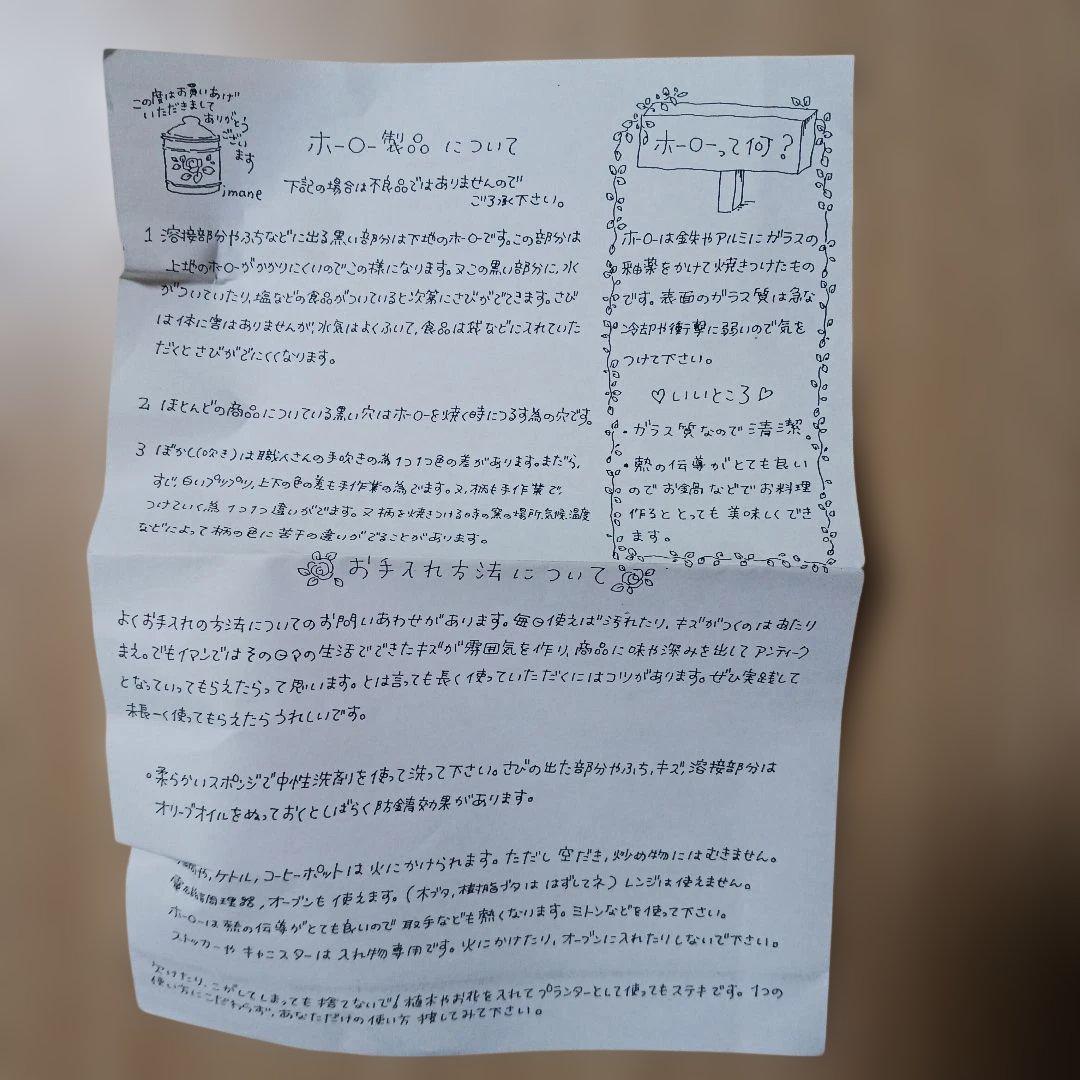 この度はお買いあげ
いただきまして
ありがとう
ござい
ます
imane
ホーロー製品について
下記の場合は不良品ではありませんので
ご了承下さい。
1 溶接部分やふちなどに出る黒い部分は下地のホーローです。この部分は
上地のホーローがかかりにくいのでこの様になります。又この黒い部分に、水
がついていたり、塩などの食品がついていると次第にさびがでてきます。さび
は体に害はありませんが、水気はよくふいて、食品は袋などに入れていた
だくとさびがでにくくなります。
2 ほとんどの商品についている黒い穴はホーローを焼く時につるす為の穴です。
3 ぼかし(吹き)は職人さんの手吹きの為1つ1つ色の差があります。まだら、
すじ、白いプツプツ、上下の色の差も手作業の為でます。又、柄も手作業で、
つけていく為1つ1つ違いがでます。又柄を焼きつける時の窯の場所、気候、温度
などによって柄の色に若干の違いがでることがあります。
ホーローって何?
ホーローは鉄やアルミにガラスの
釉薬をかけて焼きつけたもの
です。表面のガラス質は急な
冷却や衝撃に弱いので気を
つけて下さい。
♡いいところ♡
・ガラス質なので清潔。
・熱の伝導がとても良い
のでお鍋などでお料理
作るととっても美味しくでき
ます。
お手入れ方法について
よくお手入れの方法についてのお問いあわせがあります。毎日使えば汚れたり、キズがつくのはあたり
まえ。でもイマンではその日々の生活でできたキズが雰囲気を作り、商品に味や深みを出してアンティーク
となっていってもらえたらって思います。とは言っても長く使っていただくにはコツがあります。ぜひ実践して
末長ーく使ってもらえたらうれしいです。
○柔らかいスポンジで中性洗剤を使って洗って下さい。さびの出た部分やふち、キズ、溶接部分は
オリーブオイルをぬっておくとしばらく防錆効果があります。
や、ケトル、コーヒーポットは火にかけられます。ただし空だき、炒め物にはむきません。
調理器、オーブンも使えます。(木ブタ、樹脂ブタははずしてネ)レンジは使えません。
ホーローは熱の伝導がとても良いので取手なども熱くなります。ミトンなどを使って下さい。
ストッカーやキャニスターは入れ物専用です。火にかけたり、オーブンに入れたりしないで下さい。
欠けたり、こがしてしまっても捨てないで!植木やお花を入れてプランターとして使ってもステキです。1つの
使い方にこだわらず、あなただけの使い方探してみて下さい。